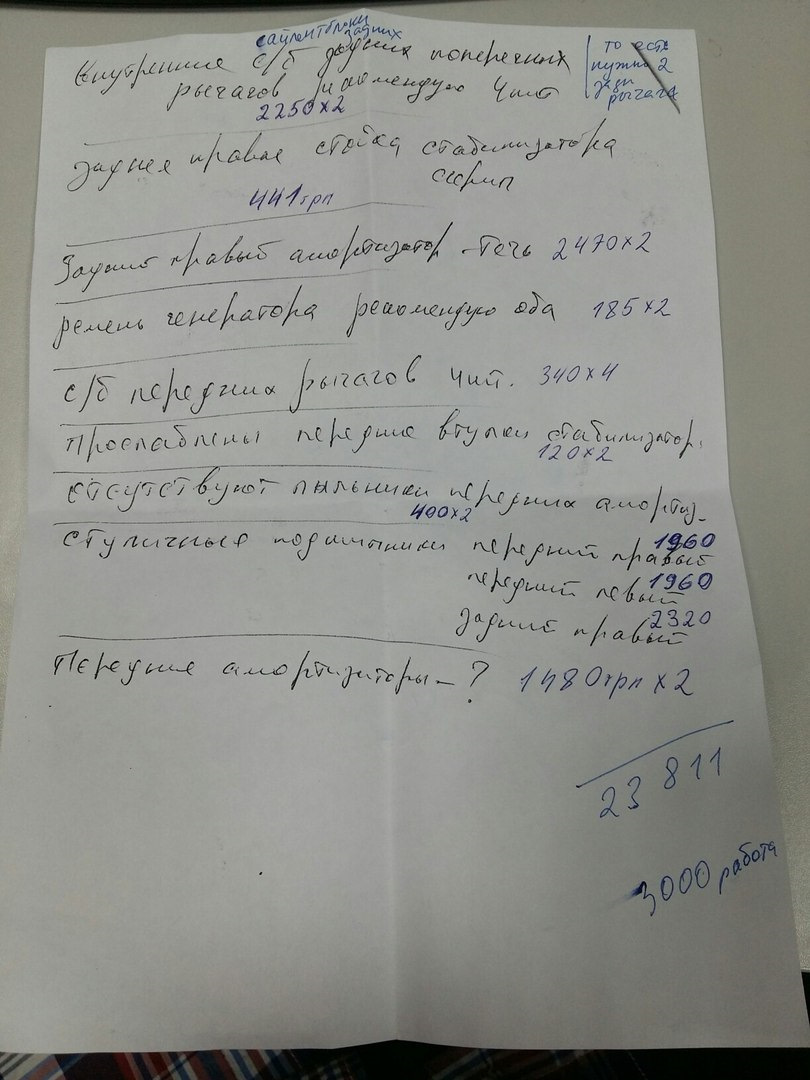 сайлентблоки
задних
Внутренние с/б задних поперечных
рычагов рекомендую 4шт
2250х2
то есть
нужно 2
рычага
Заднее правое стойка стабилизатора
скрип
441грн
Задний правый амортизатор - течь 2470х2
ремень генератора рекомендую оба 185х2
с/б передних рычагов 4шт. 340х4
Прослаблены передние втулки стабилизатор.
120х2
отсутствуют пыльники передних амортиз_
400х2
ступичные подшипники передний правый 1960
передний левый 1960
задний правый 2320
Передние амортизаторы - ? 1480грн х2
23 811
3000 работа